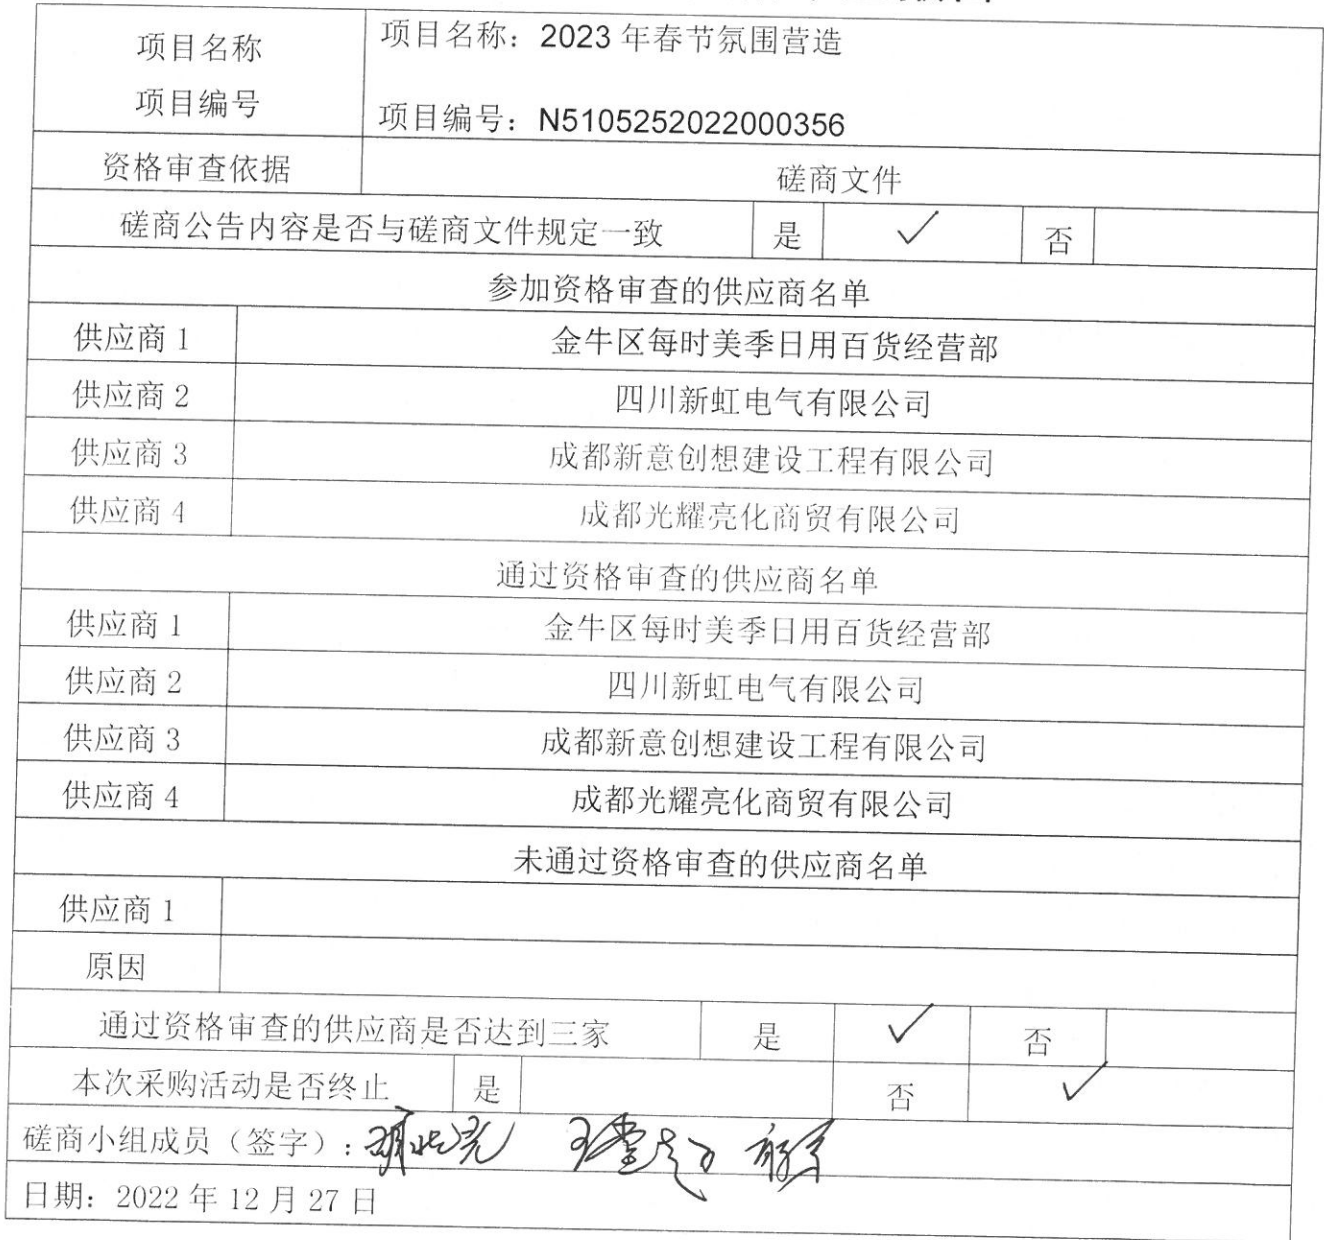 项目名称
项目编号
项目名称：2023 年春节氛围营造
项目编号：N5105252022000356
资格审查依据 磋商文件
磋商公告内容是否与磋商文件规定一致 是 ✓ 否
参加资格审查的供应商名单
供应商 1 金牛区每时美季日用百货经营部
供应商 2 四川新虹电气有限公司
供应商 3 成都新意创想建设工程有限公司
供应商 4 成都光耀亮化商贸有限公司
通过资格审查的供应商名单
供应商 1 金牛区每时美季日用百货经营部
供应商 2 四川新虹电气有限公司
供应商 3 成都新意创想建设工程有限公司
供应商 4 成都光耀亮化商贸有限公司
未通过资格审查的供应商名单
供应商 1
原因
通过资格审查的供应商是否达到三家 是 ✓ 否
本次采购活动是否终止 是 否 ✓
磋商小组成员（签字）：
日期：2022 年 12 月 27 日